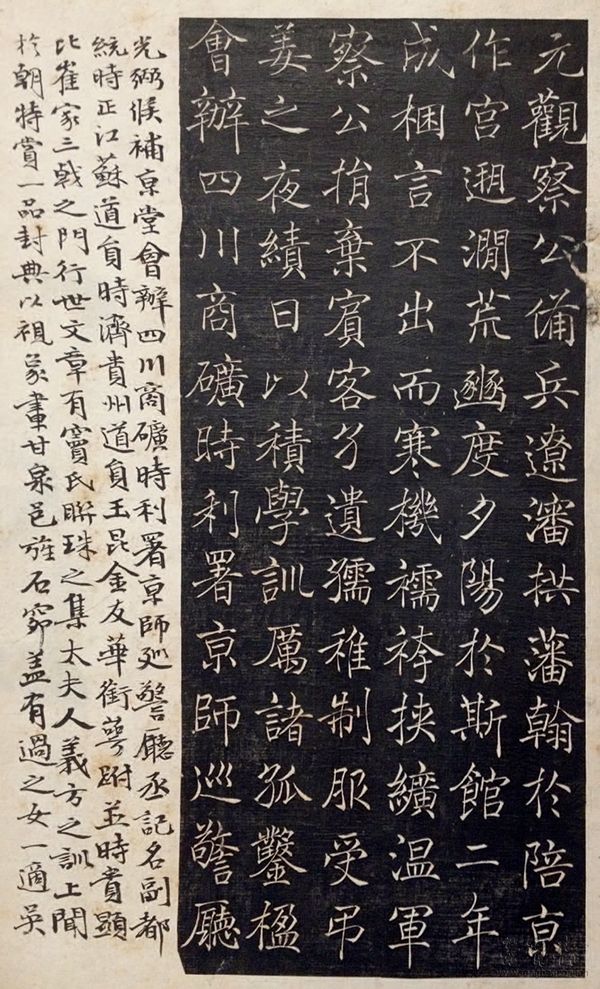 元觀察公備兵遼瀋拱藩翰於陪京
作宮遡澗荒豳度夕陽於斯館二年
成梱言不出而寒機襦袴挾纊溫軍
察公捐棄賓客予遺孺稚制服受弔
姜之夜績日以積學訓厲諸孤鑿楹
會辦四川商礦時利署京師巡警廳
光弼候補京堂會辦四川商礦時利署京師巡警廳丞記名副都
統時正江蘇道員時濟貴州道員王昆金友華銜萼跗並時貴顯
比崔家三戟之門行世文章有竇氏聯珠之集太夫人義方之訓上聞
於朝特賞一品封典以視象畫甘泉邑旌石窌蓋有過之女一適吳